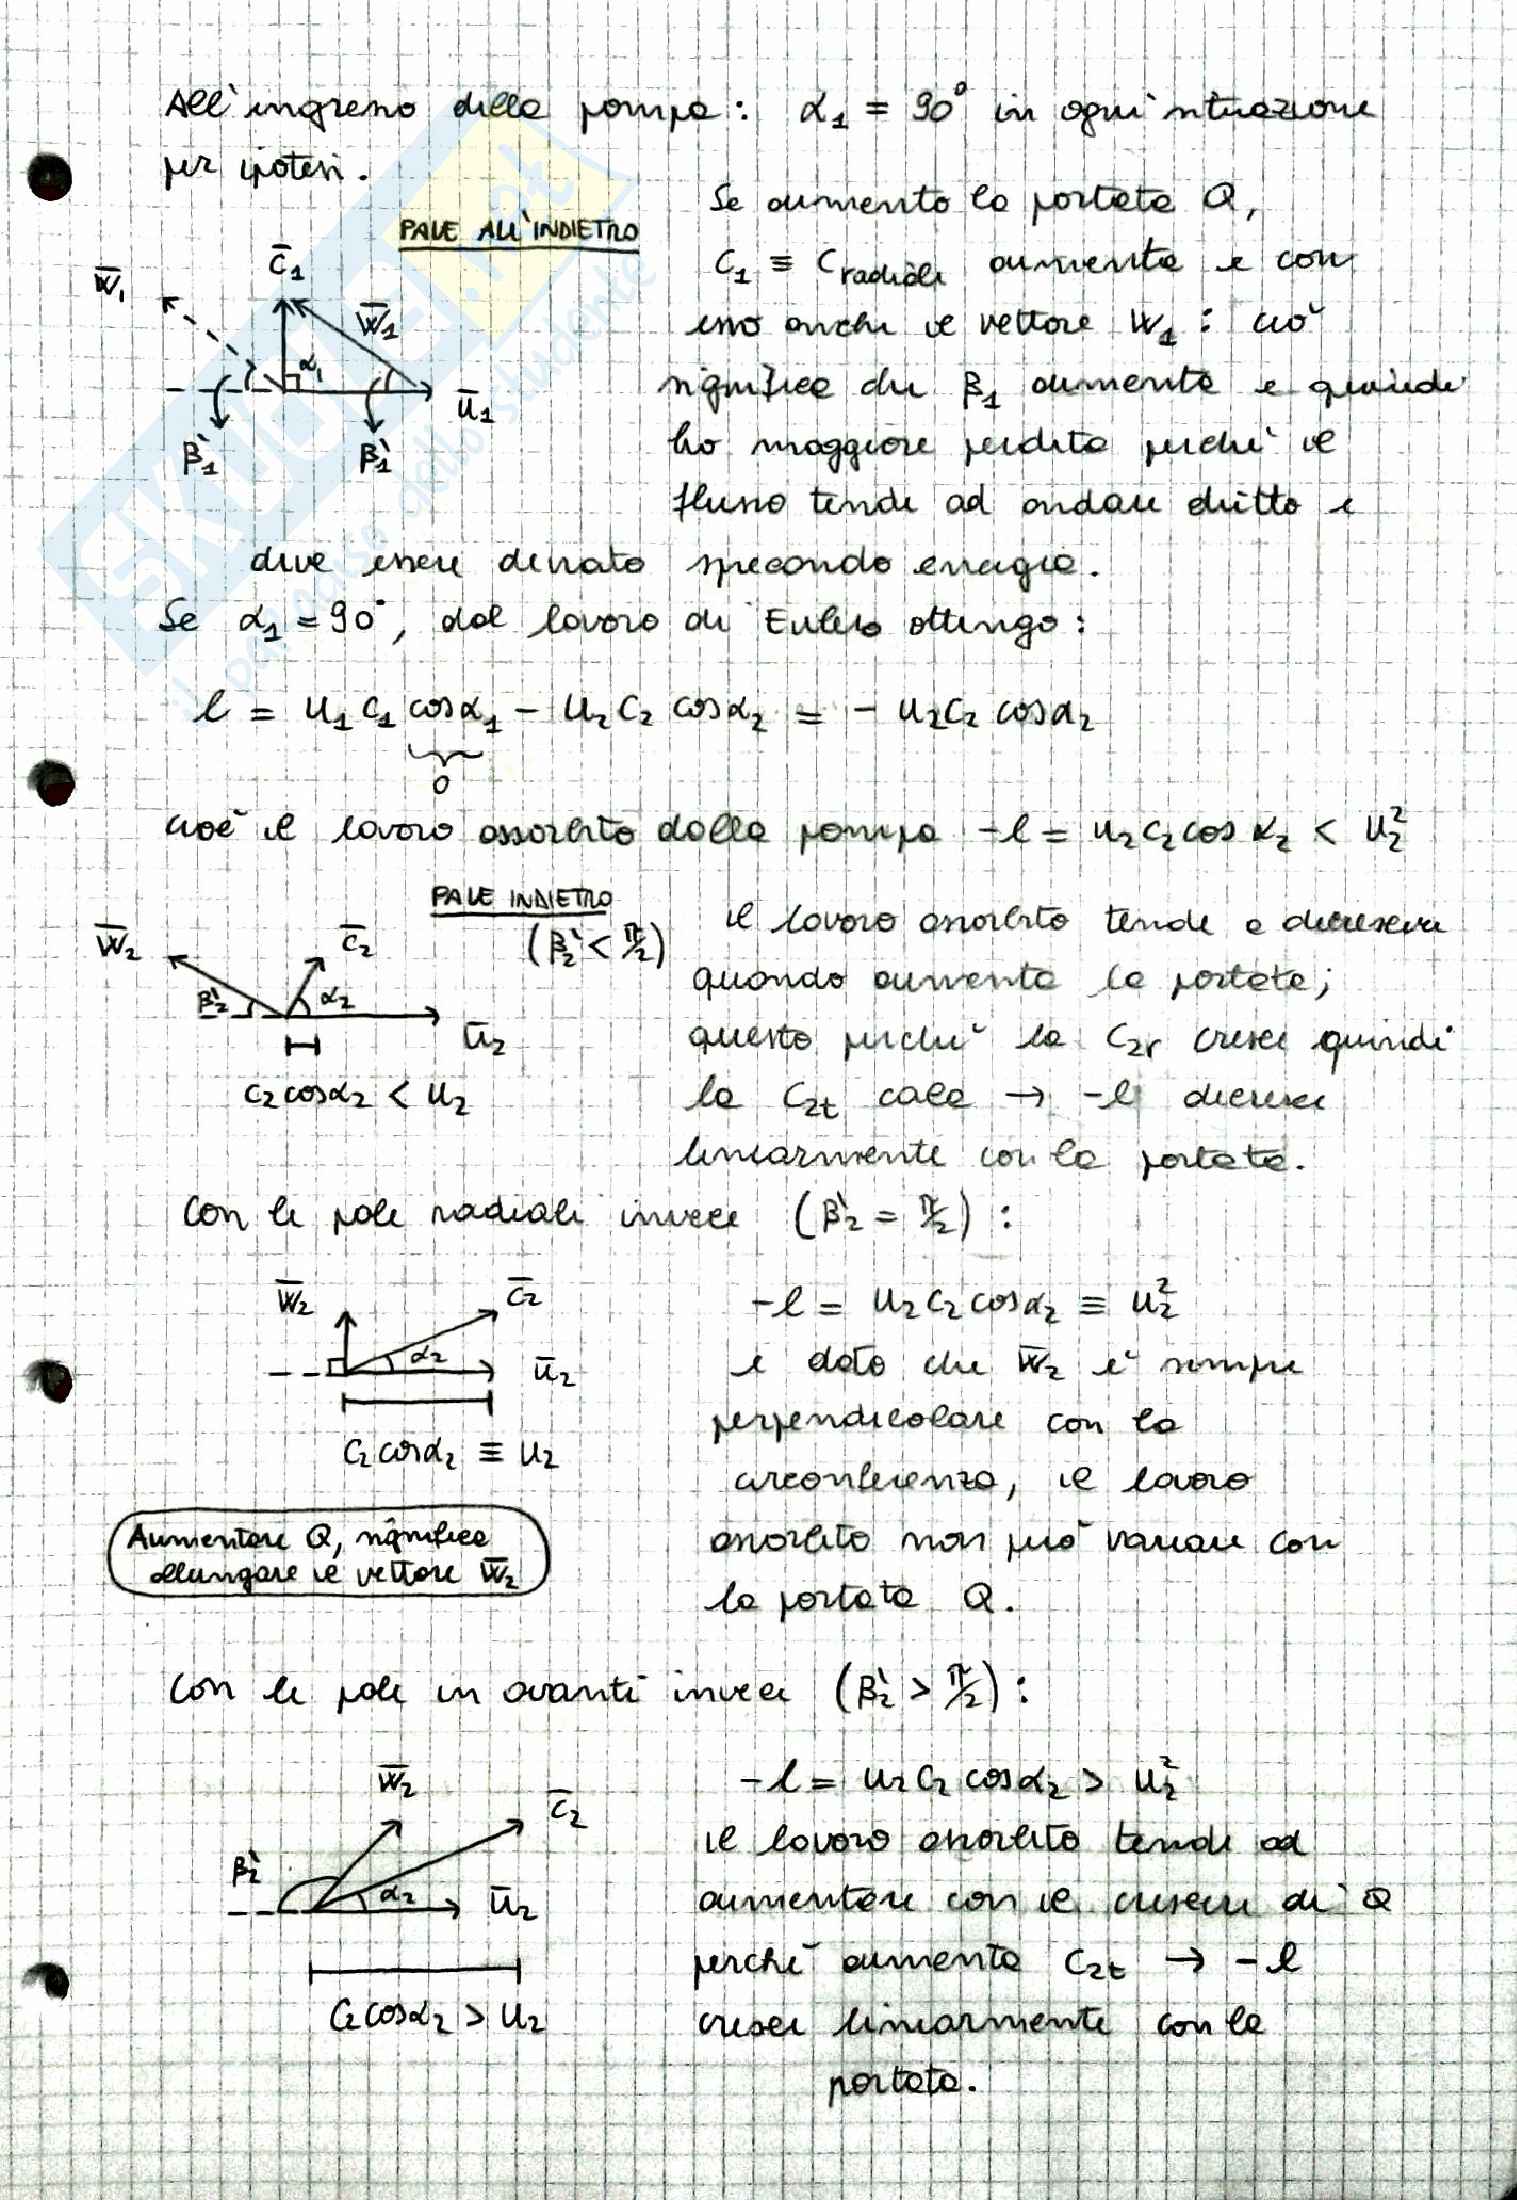 All'ingresso della pompa: α₁ = 90° in ogni situazione
per ipotesi.
PALE ALL'INDIETRO
Se aumento la portata Q,
C₁ ≡ Cradiale aumenta e con
esso anche il vettore W₁: ciò
significa che β₁ aumenta e quindi
ho maggiore perdita perché il
flusso tende ad andare dritto e
deve essere deviato sprecando energia.
W̅₁ C̅₁ W̅₁ α₁ u̅₁
β₁' β₁'
Se α₁ = 90°, dal lavoro di Eulero ottengo:
l = u₁ c₁ cosα₁ - u₂ c₂ cosα₂ = - u₂c₂ cosα₂
0
cioè il lavoro assorbito dalla pompa -l = u₂c₂cosα₂ < u₂²
PALE INDIETRO
(β₂' < π/2)
W̅₂ C̅₂
β₂' α₂
u̅₂
c₂cosα₂ < u₂
il lavoro assorbito tende a decrescere
quando aumenta la portata;
questo perché la C₂r cresce quindi
la C₂t cala → -l decresce
linearmente con la portata.
Con le pale radiali invece (β₂' = π/2):
W̅₂ C̅₂
α₂ u̅₂
c₂cosα₂ ≡ u₂
-l = u₂c₂cosα₂ ≡ u₂²
e dato che W̅₂ è sempre
perpendicolare con la
circonferenza, il lavoro
assorbito non può variare con
la portata Q.
Aumentare Q, significa
allungare il vettore W̅₂
Con le pale in avanti invece (β₂' > π/2):
W̅₂ C̅₂
β₂' α₂ u̅₂
c₂cosα₂ > u₂
-l = u₂c₂cosα₂ > u₂²
il lavoro assorbito tende ad
aumentare con il crescere di Q
perché aumenta C₂t → -l
cresce linearmente con la
portata.
SKUOLA.net
il paradiso dello studente